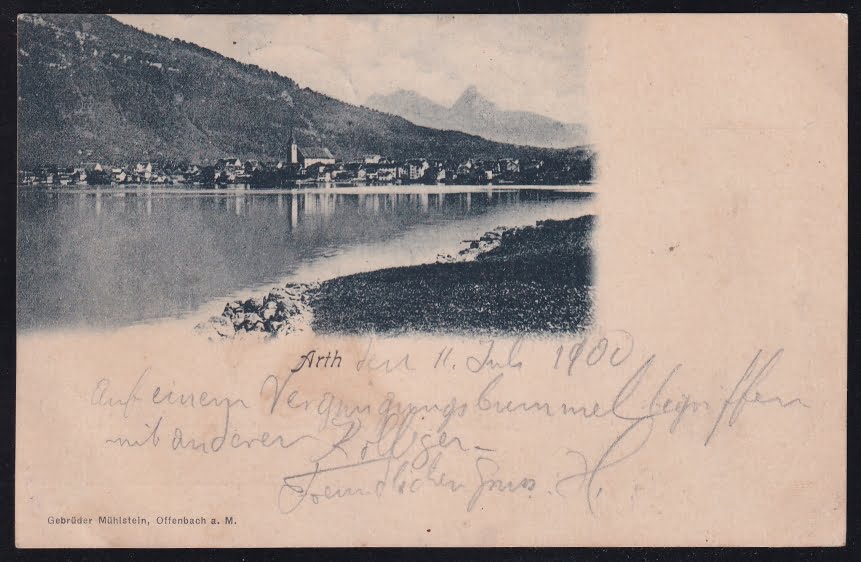 Arth den 11. Juli 1900
Auf einem Vergnügungsbummel begriffen
mit anderen
Freundlichen Gruss. H.
Gebrüder Mühlstein, Offenbach a. M.